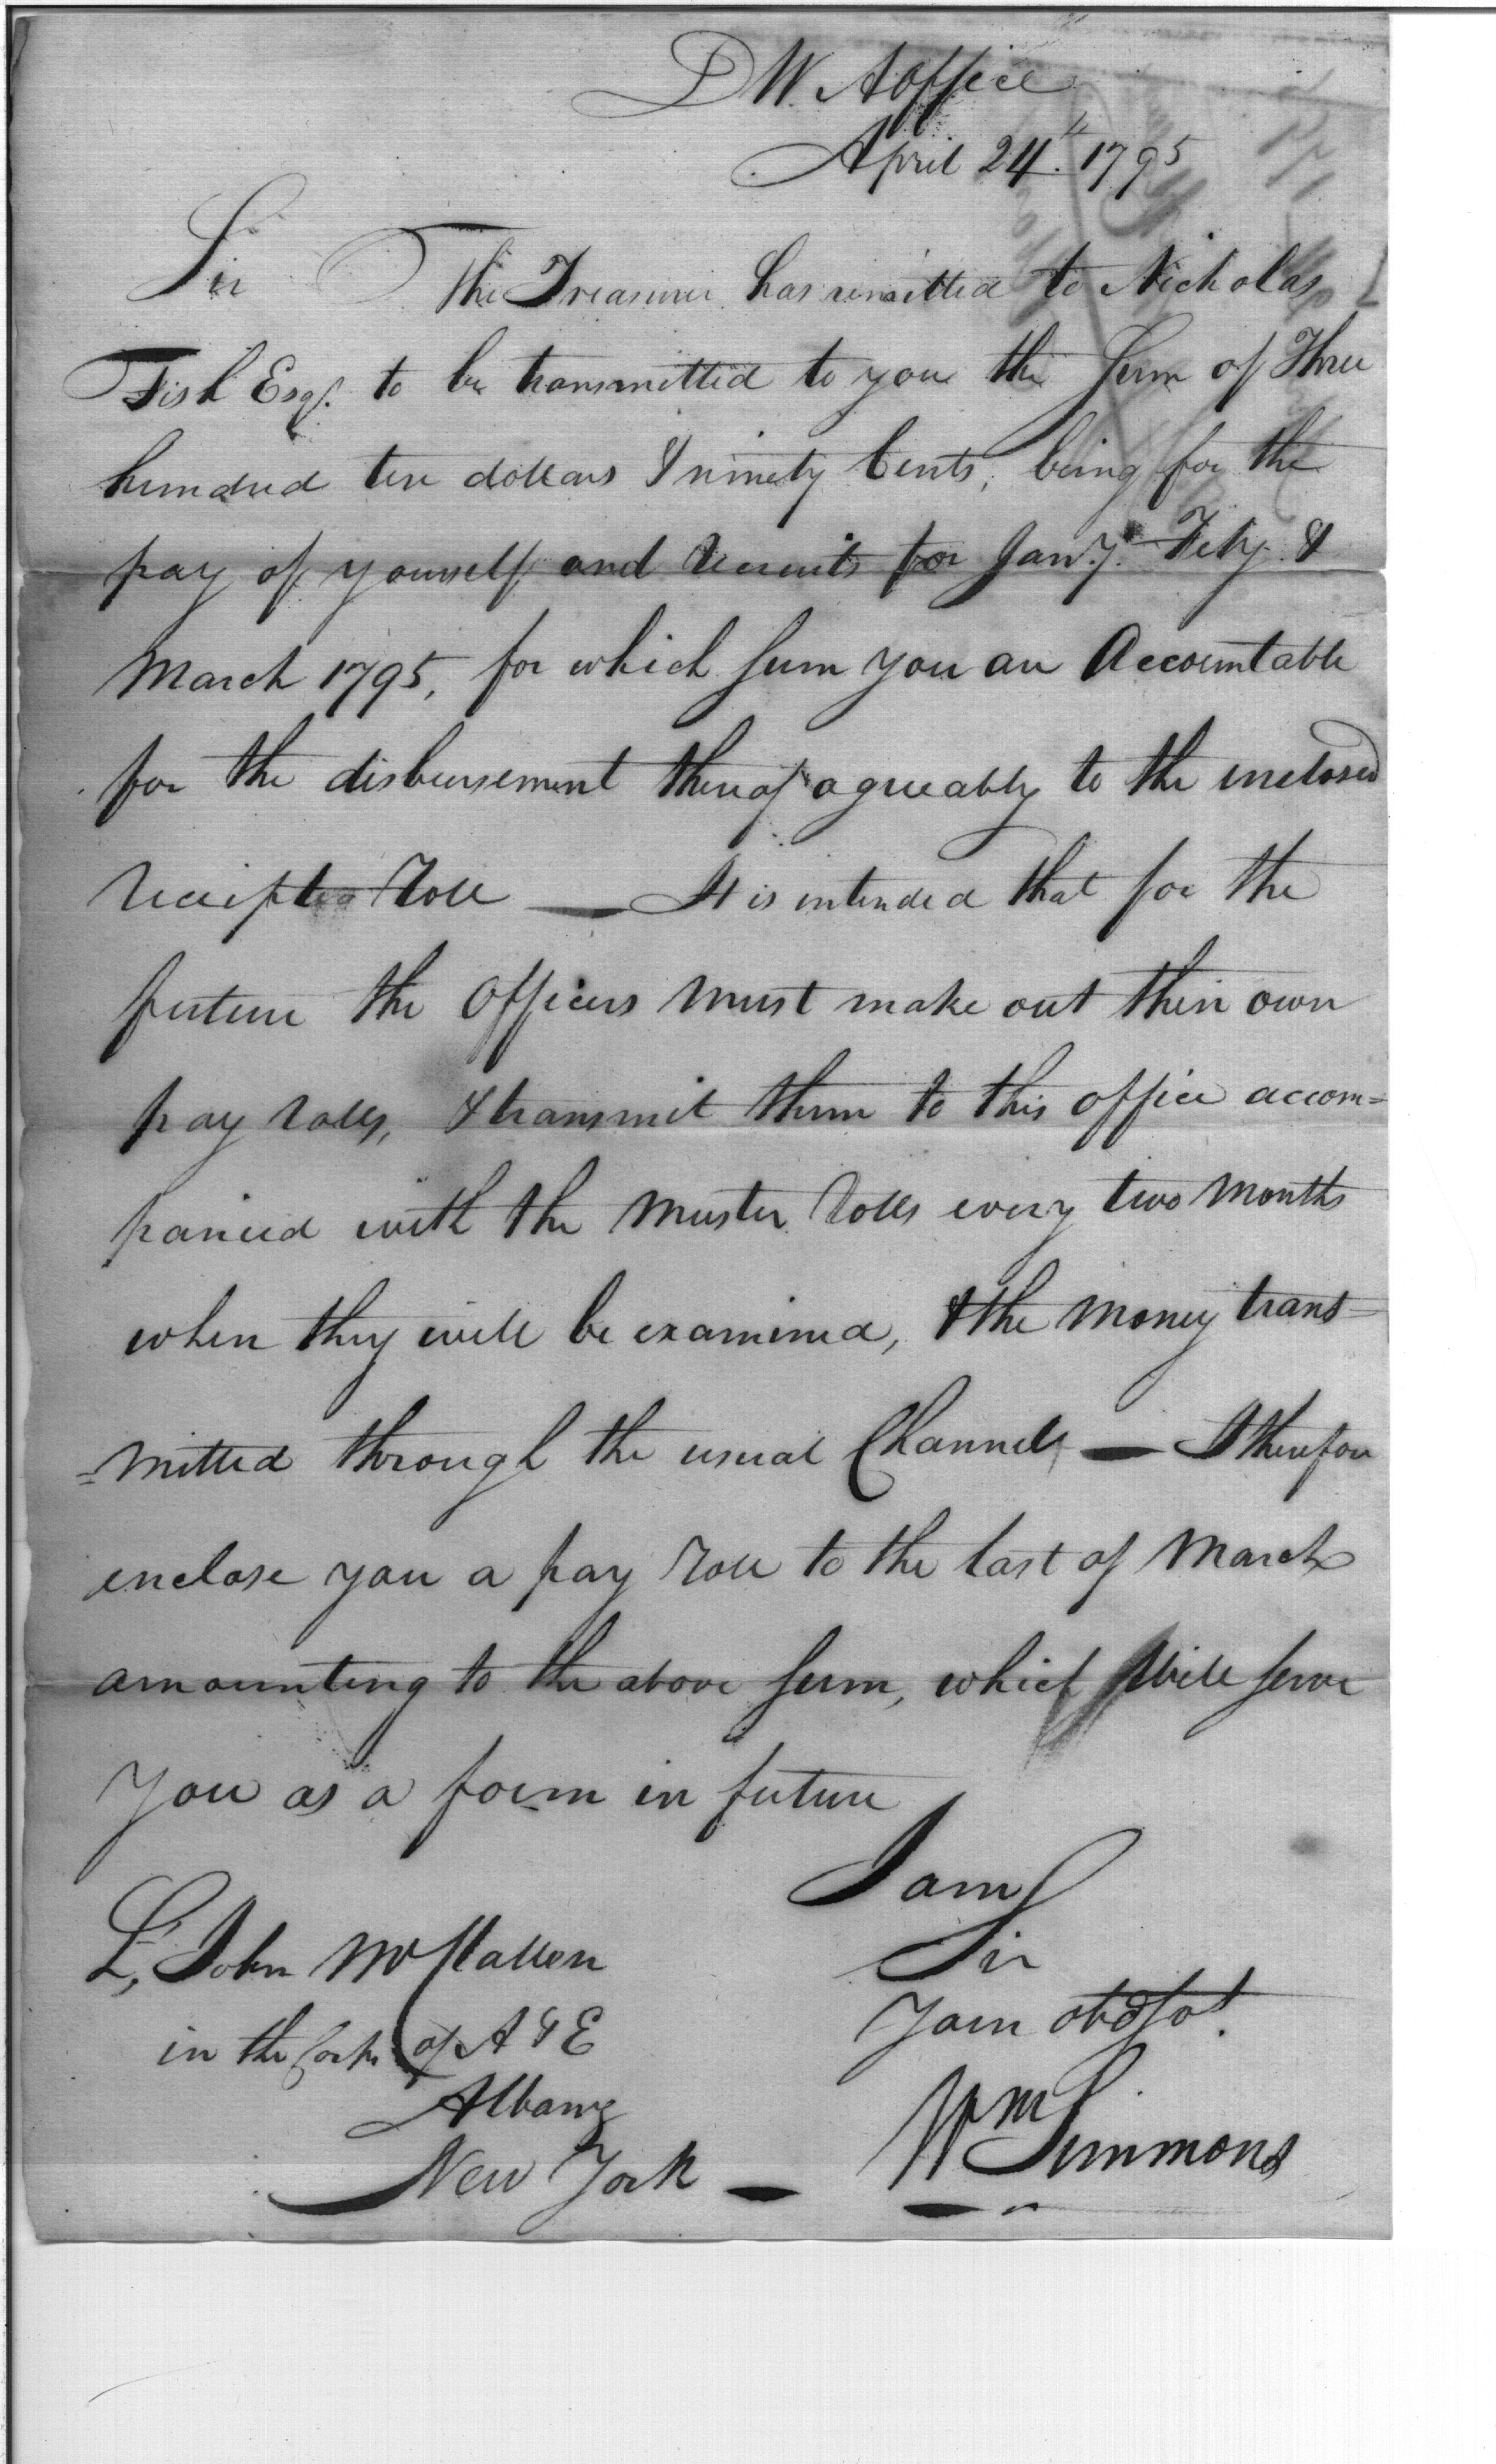 D W. A Office
April 24th. 1795
Sir The Treasurer has remitted to Nicholas
Fish Esqr. to be transmitted to you the sum of Three
hundred ten dollars & ninety Cents, being for the
pay of yourself and recruits for Jany. Feby. &
March 1795, for which sum you are Accountable
for the disbursement thereof agreeably to the enclosed
receipted Roll — It is intended that for the
future the Officers must make out their own
pay rolls, & transmit them to this office accom=
panied with the Muster rolls every two Months
when they will be examined, & the Money trans=
=mitted through the usual Channels — I therefore
enclose you a pay roll to the last of March
amounting to the above sum, which will serve
you as a form in future
I am
Sir
Your obd Sot.
Wm Simmons
Lt. John McClallen
in the Corps of A & E
Albany
New York —